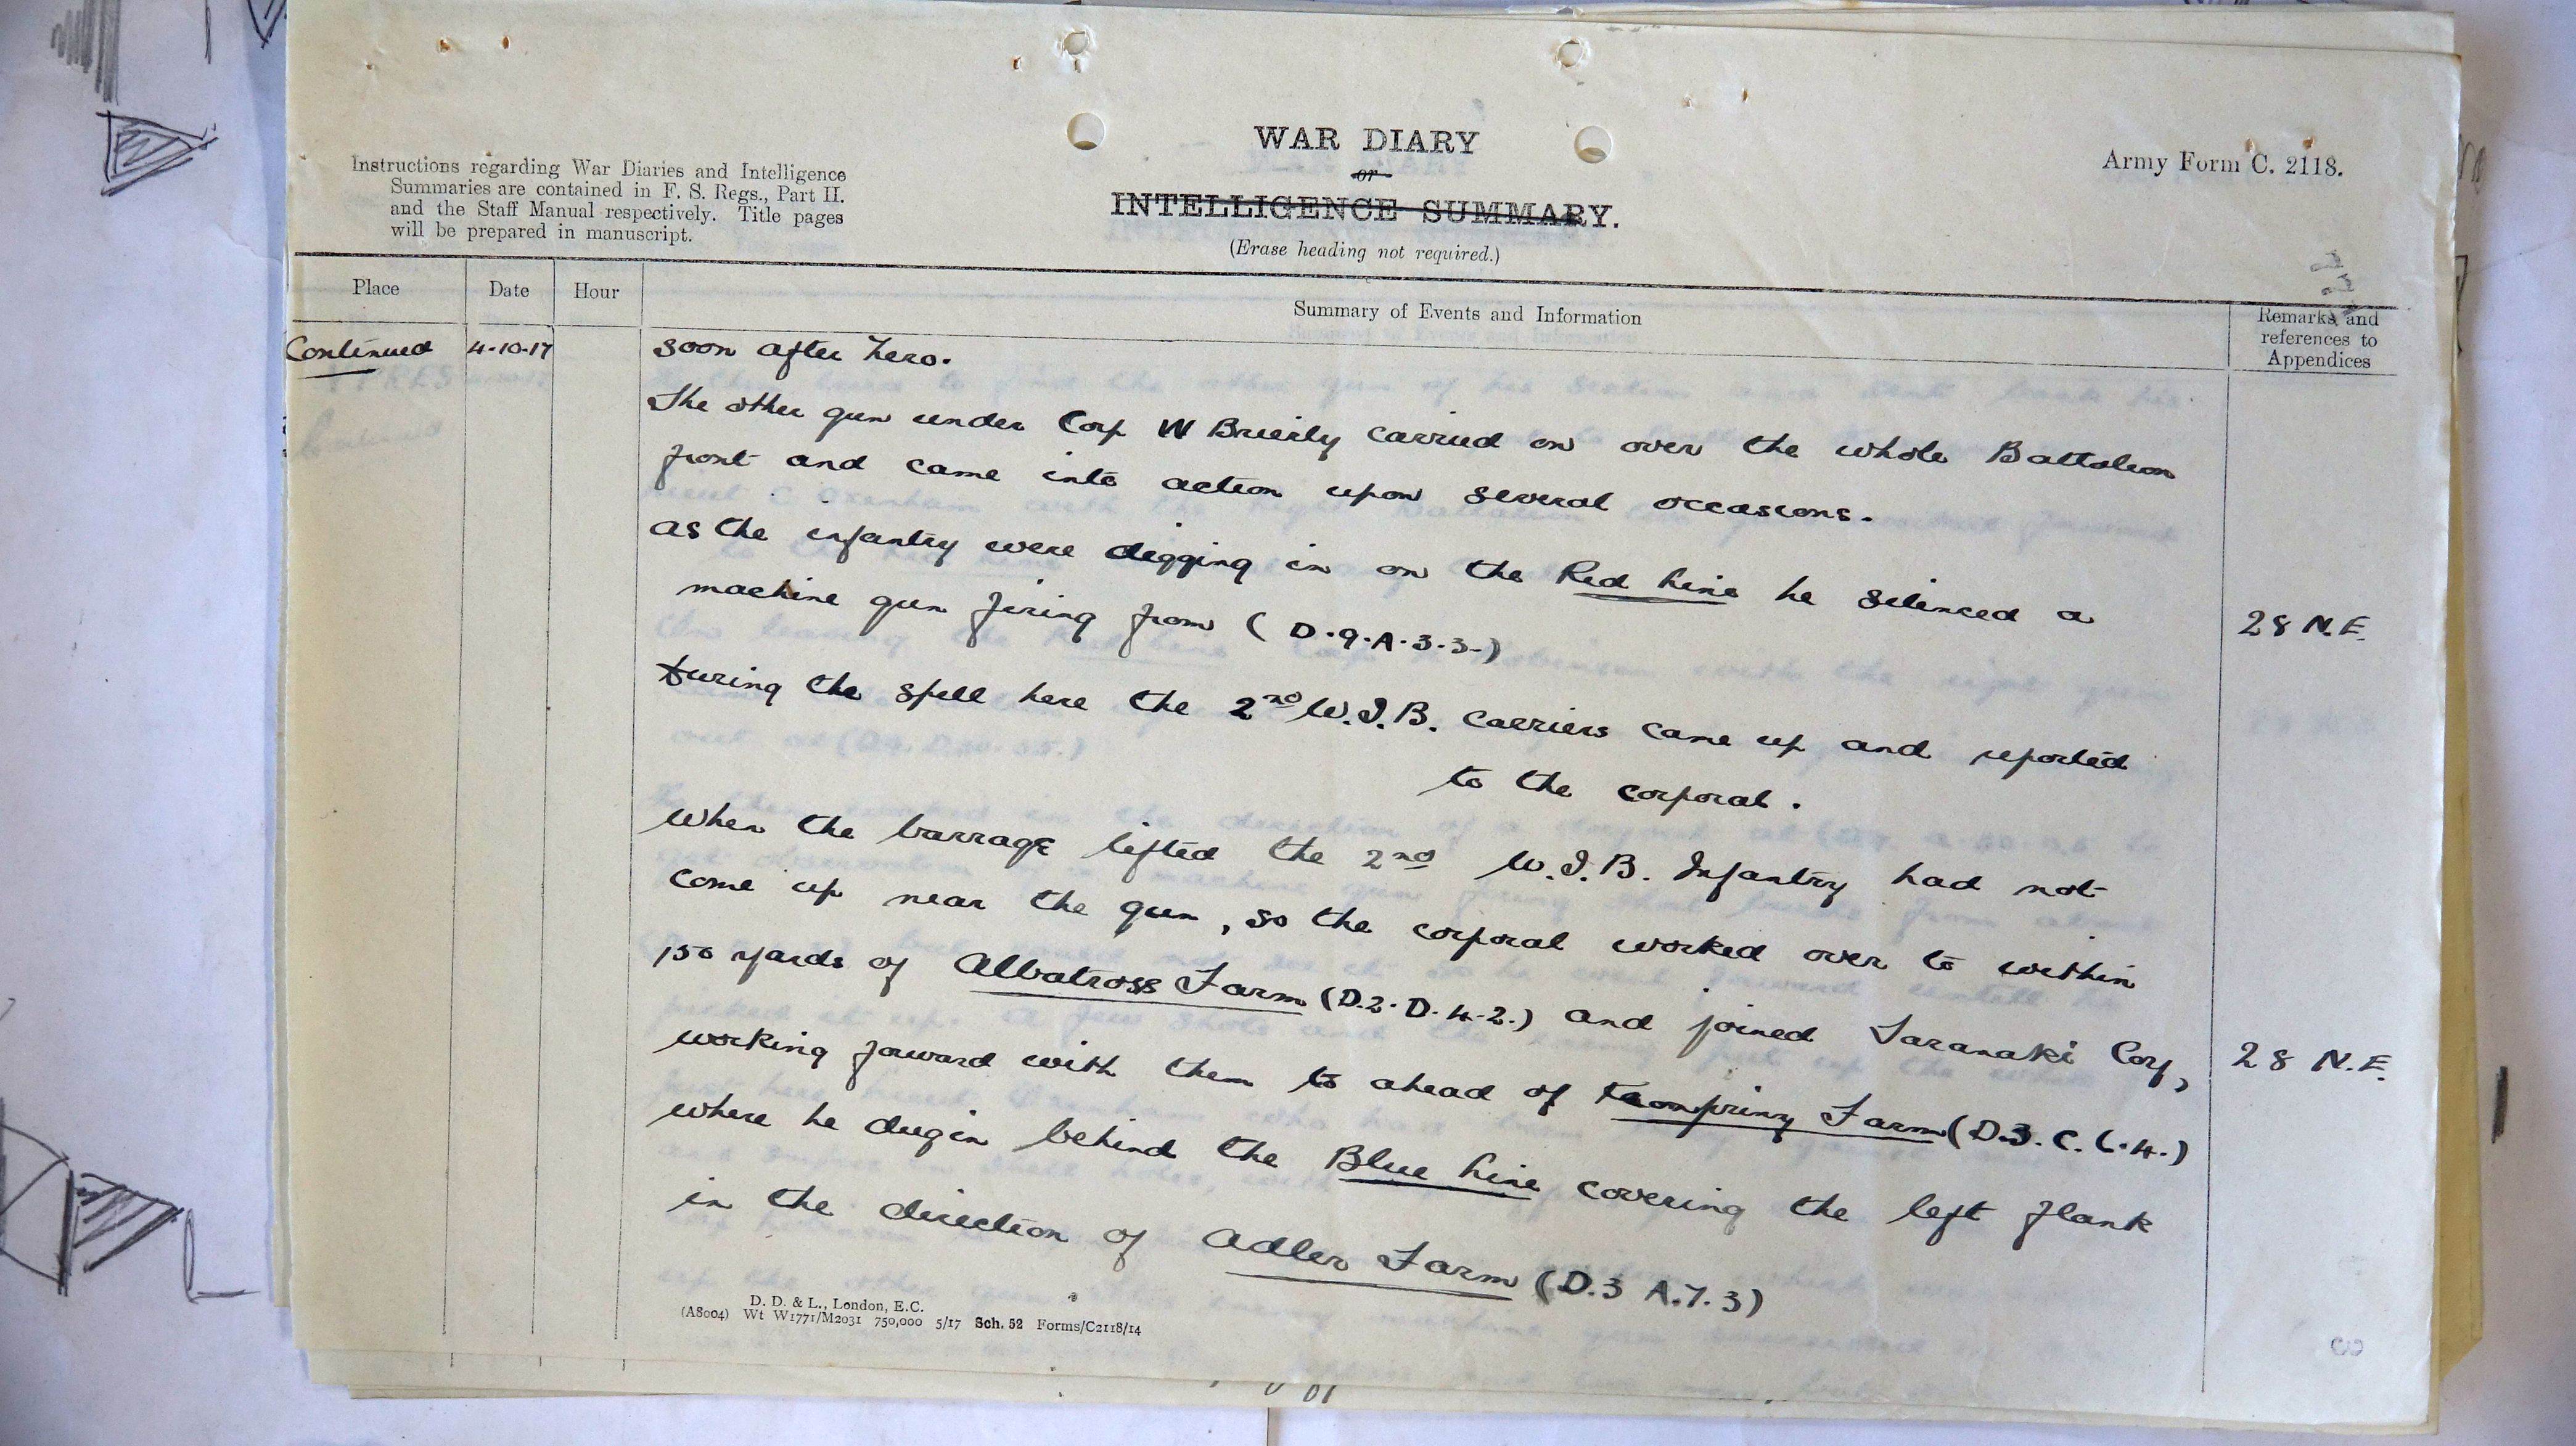 Instructions regarding War Diaries and Intelligence
Summaries are contained in F. S. Regs., Part II.
and the Staff Manual respectively. Title pages
will be prepared in manuscript.
WAR DIARY
or
INTELLIGENCE SUMMARY.
(Erase heading not required.)
Army Form C. 2118.
Place
Date
Hour
Summary of Events and Information
Remarks and
references to
Appendices
Continued 4-10-17 soon after zero.
The other gun under Corp W Brierly carried on over the whole Battalion
front and came into action upon several occasions.
as the infantry were digging in on the Red Line he silenced a
machine gun firing from (D.9.A.3.3.) 28 N.E.
During the spell here the 2nd W.I.B. carriers came up and reported
to the corporal.
When the barrage lifted the 2nd W.I.B. Infantry had not
come up near the gun, so the corporal worked over to within
150 yards of Albatross Farm (D.2.D.4.2.) and joined Taranaki Coy,
working foward with them to ahead of Farm (D.3.C. .4.) 28 N.E.
where he dugin behind the Blue Line covering the left flank
in the direction of Adler Farm (D.3 A.7.3)
D. D. & L., London, E.C.
(A8004) Wt W1771/M2031 750,000 5/17 Sch. 52 Forms/C2118/14